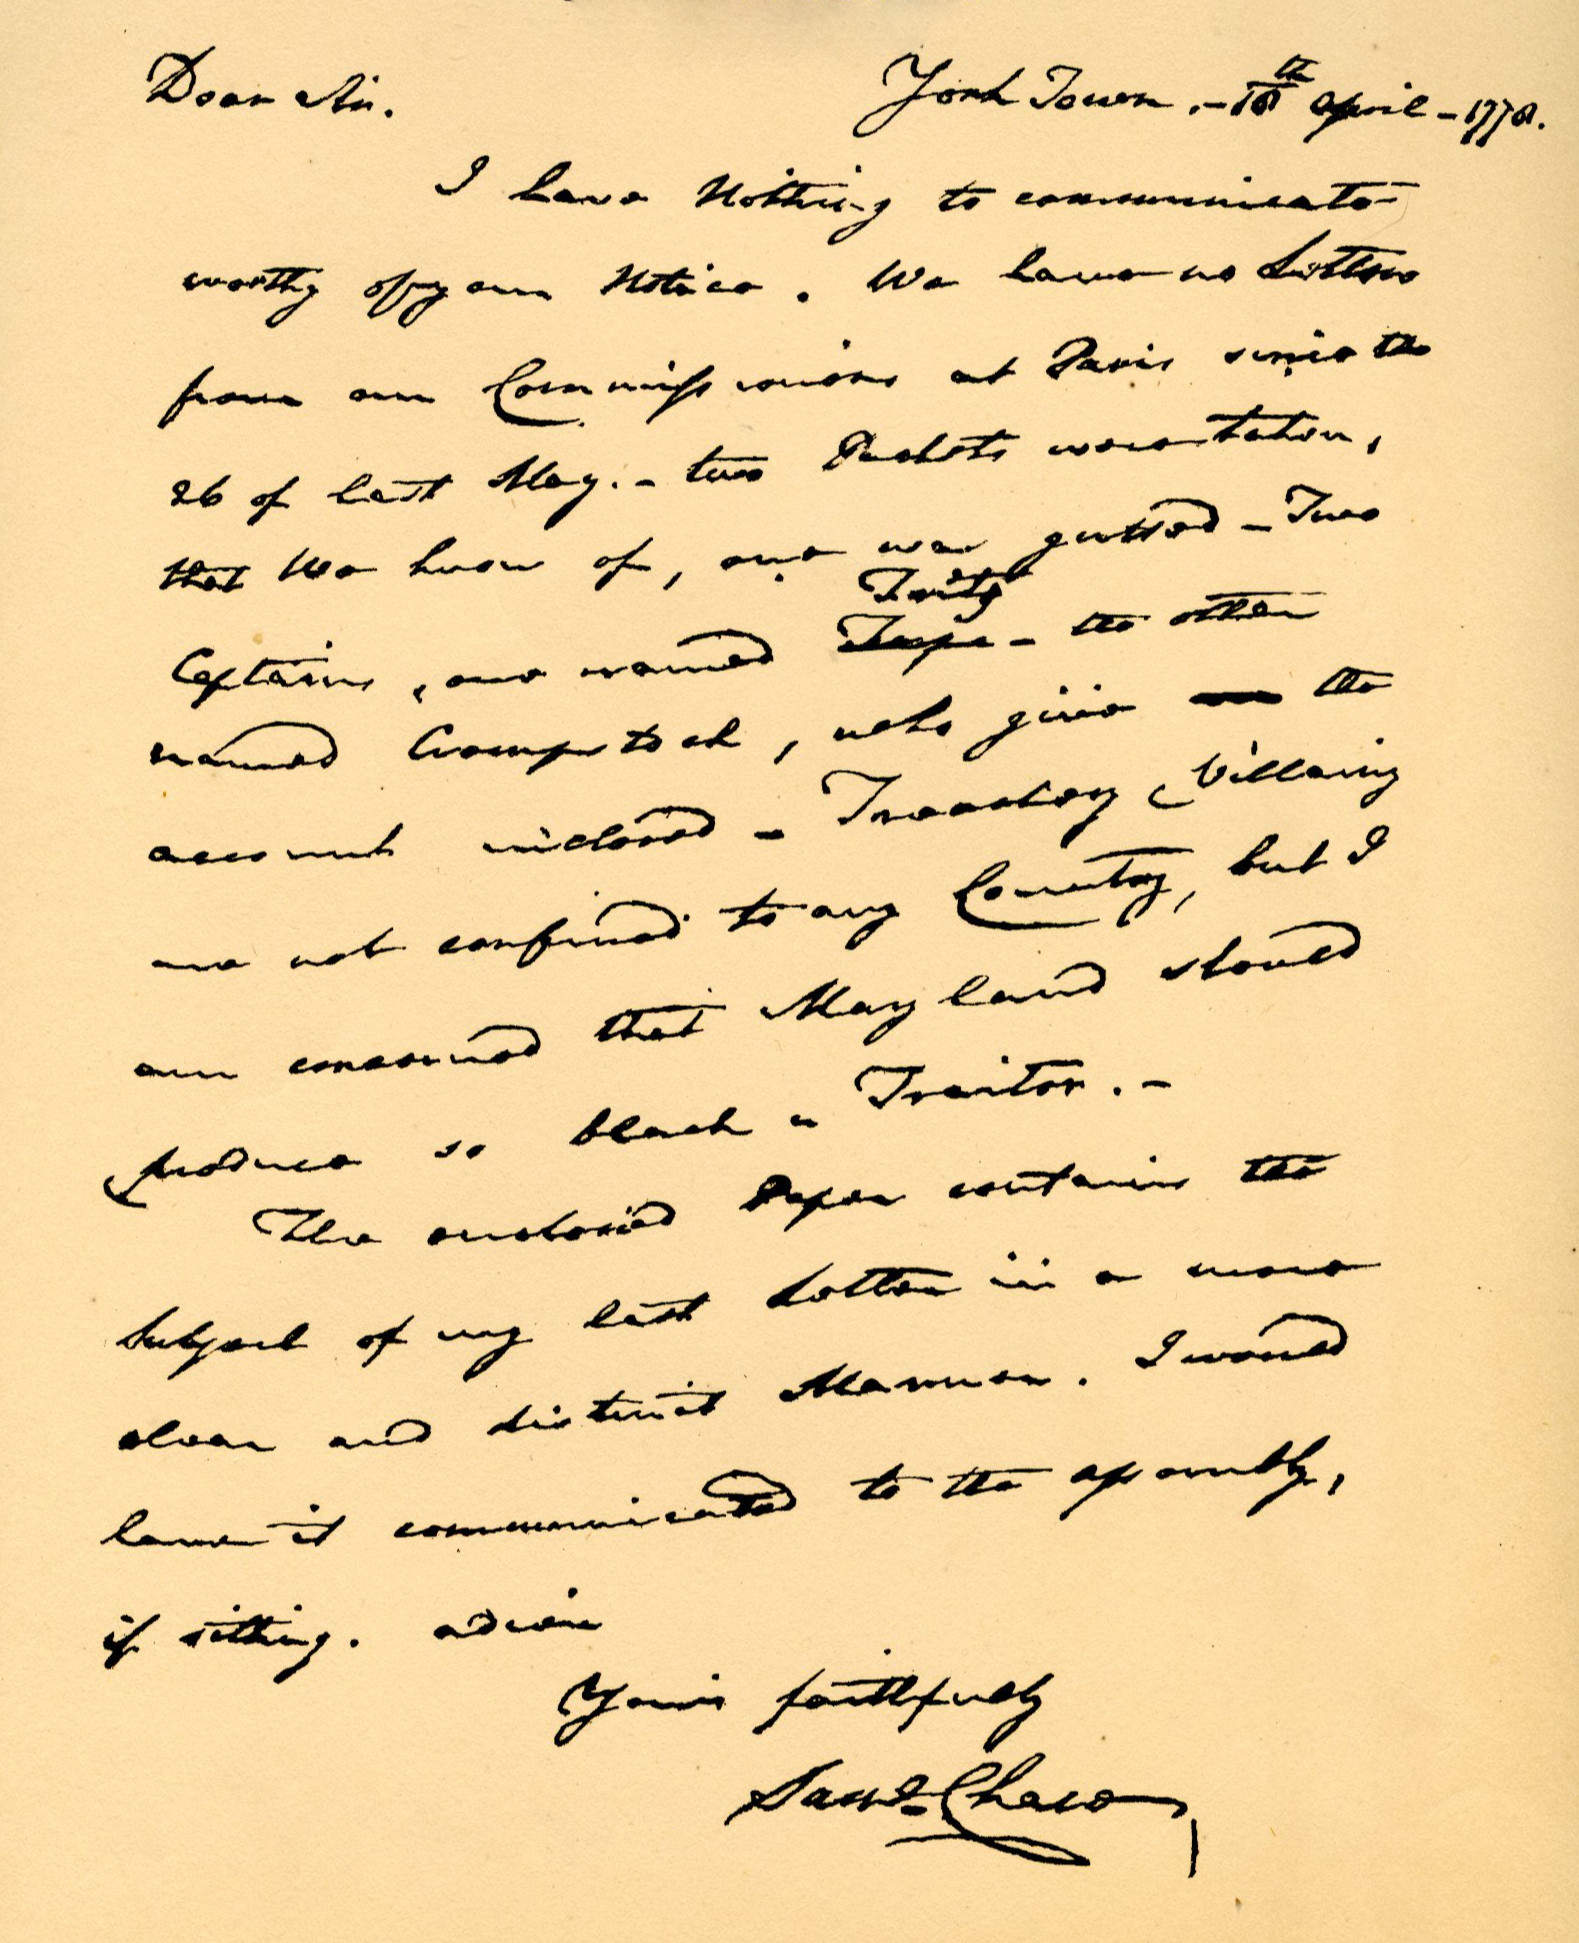 Dear Sir.
York Town.- 18th April - 1778.
I have Nothing to communicate
worthy of your Notice. We have no Letters
from our Commissioners at Paris since the
26 of last May. - two Packets were taken,
that We know of, one was gutted - Two
Captains, one named Folger - the other
named Compstock, who give the
account inclosed - Treachery & Villainy
are not confined to any Country, but I
am concerned that Mayland should
produce so black a Traitor. -
The enclosed Paper contains the
Subject of my last Letter in a more
clear and distinct Manner. I would
have it communicated to the assembly,
if sitting. adieu
Yours faithfully
Saml. Chase